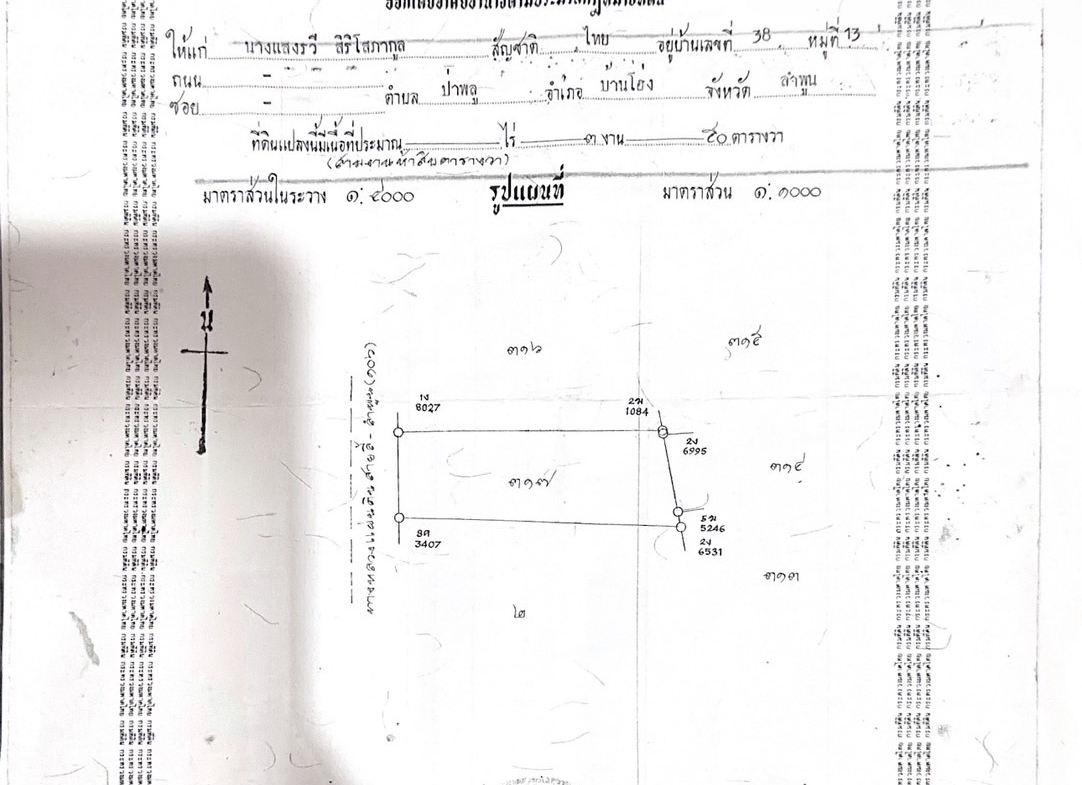 ให้แก่ นางแสงรวี สิริโสภากูล สัญชาติ ไทย อยู่บ้านเลขที่ 38 หมู่ที่ 13
ถนน - 
ซอย - ตำบล ป่าพลู อำเภอ บ้านโฮ่ง จังหวัด ลำพูน
ที่ดินแปลงนี้มีเนื้อที่ประมาณ ไร่ ๓ งาน ๕๐ ตารางวา
(สามงานห้าสิบตารางวา)
มาตราส่วนในระวาง ๑:๔๐๐๐ รูปแผนที่ มาตราส่วน ๑:๑๐๐๐
น
๓๑๖
๓๑๕
1ง
8027
2ม
1084
2ง
6995
๓๑๔
๓๑๗
ทางหลวงแผ่นดินสายลี้ - ลำพูน (๑๐๖)
8ศ
3407
5ม
5246
2ง
6531
๓๑๓
๒